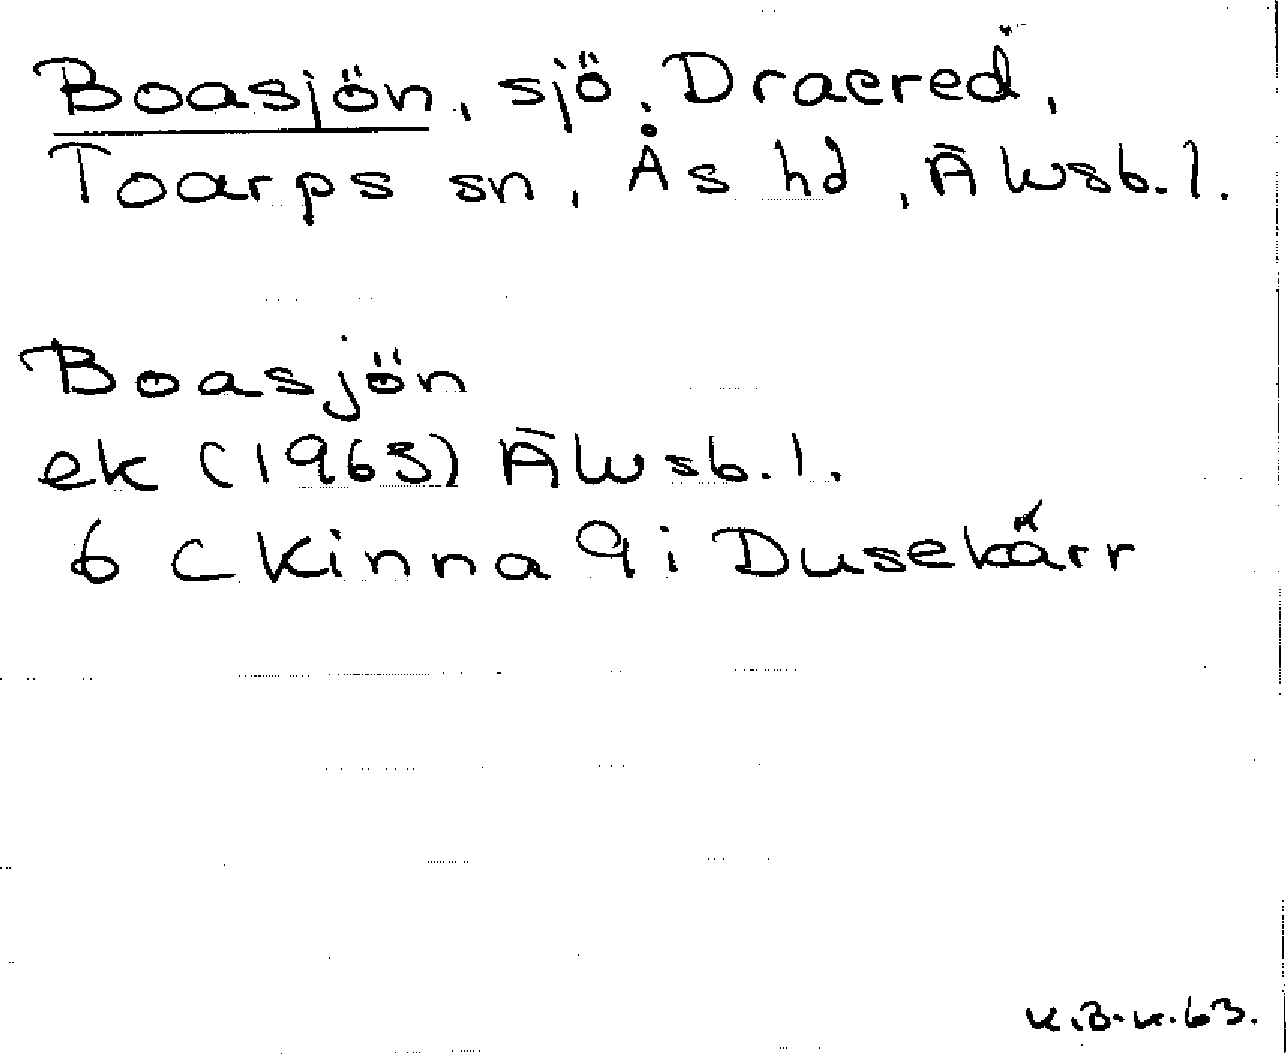 Boasjön, sjö, Draered,
Toarps sn, Ås hd, Älvsb. l.
Boasjön
ek (1963) Älvsb. l.
6 C Kinna 9 i Dusekärr
K.B-K.63.